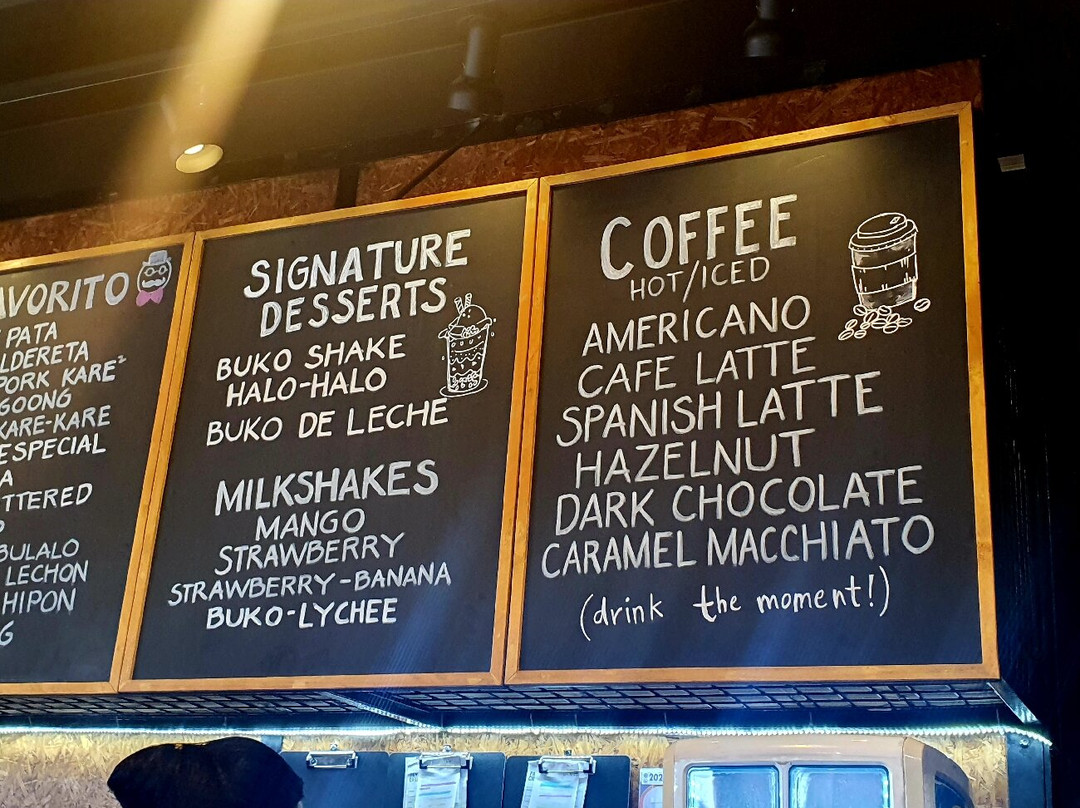 AVORITO
PATA
LDERETA
PORK KARE²
GOONG
KARE-KARE
ESPECIAL
A
TTERED
P
BULALO
LECHON
HIPON
G
SIGNATURE
DESSERTS
BUKO SHAKE
HALO-HALO
BUKO DE LECHE
MILKSHAKES
MANGO
STRAWBERRY
STRAWBERRY-BANANA
BUKO-LYCHEE
COFFEE
HOT/ICED
AMERICANO
CAFE LATTE
SPANISH LATTE
HAZELNUT
DARK CHOCOLATE
CARAMEL MACCHIATO
(drink the moment!)
202